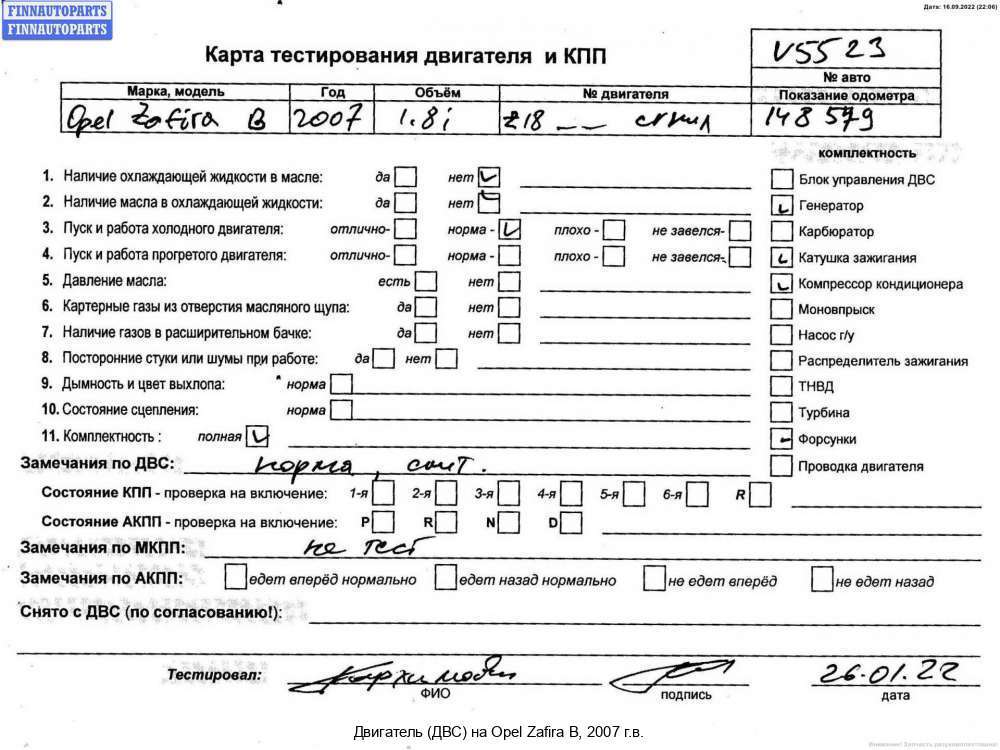 FINNAUTOPARTS
FINNAUTOPARTS
Дата: 16.09.2022 (22:06)
Карта тестирования двигателя и КПП
V5523
№ авто
Марка, модель Год Объём № двигателя Показание одометра
Opel Zafira B 2007 1.8i Z18 _ _ 148 579
комплектность
1. Наличие охлаждающей жидкости в масле: да нет Блок управления ДВС
2. Наличие масла в охлаждающей жидкости: да нет Генератор
3. Пуск и работа холодного двигателя: отлично- норма - плохо - не завелся- Карбюратор
4. Пуск и работа прогретого двигателя: отлично- норма - плохо - не завелся- Катушка зажигания
5. Давление масла: есть нет Компрессор кондиционера
6. Картерные газы из отверстия масляного щупа: да нет Моновпрыск
7. Наличие газов в расширительном бачке: да нет Насос г/у
8. Посторонние стуки или шумы при работе: да нет Распределитель зажигания
9. Дымность и цвет выхлопа: норма ТНВД
10. Состояние сцепления: норма Турбина
11. Комплектность : полная Форсунки
Замечания по ДВС: норма, Проводка двигателя
Состояние КПП - проверка на включение: 1-я 2-я 3-я 4-я 5-я 6-я R
Состояние АКПП - проверка на включение: P R N D
Замечания по МКПП: не тест
Замечания по АКПП: едет вперёд нормально едет назад нормально не едет вперёд не едет назад
Снято с ДВС (по согласованию!):
Тестировал: 26.01.22
ФИО подпись дата
Двигатель (ДВС) на Opel Zafira B, 2007 г.в.